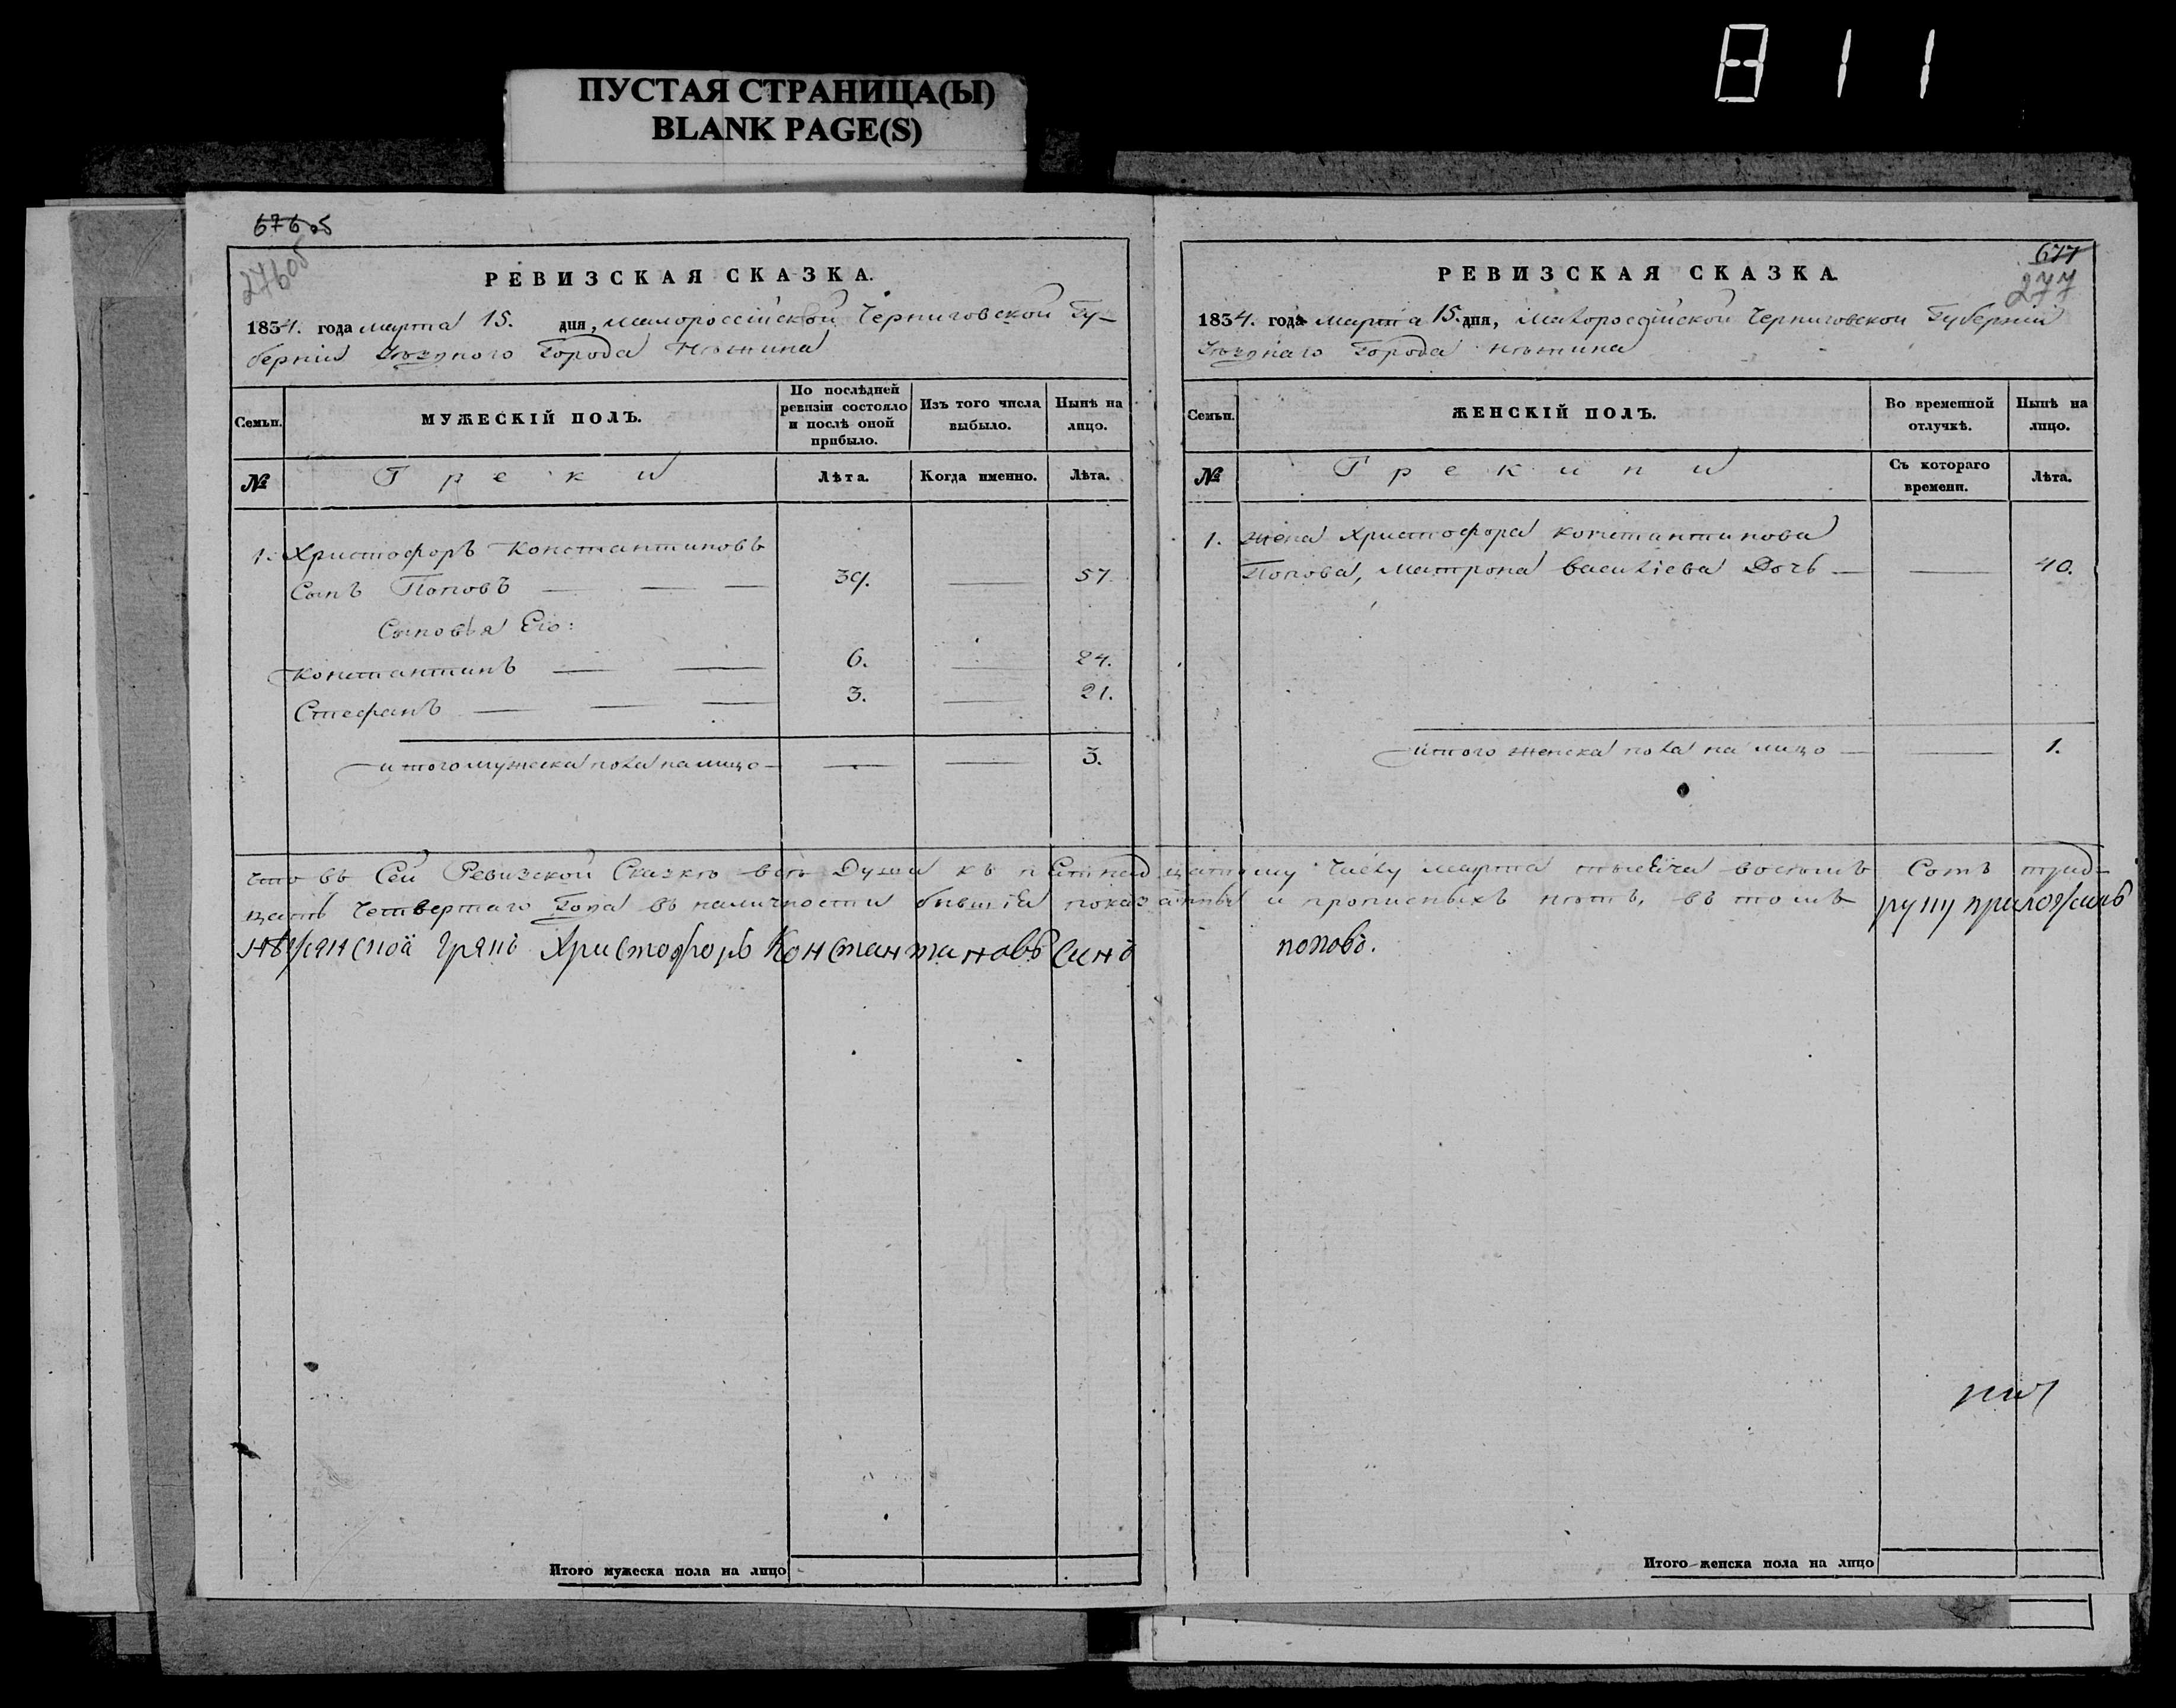 811
ПУСТАЯ СТРАНИЦА(Ы)
BLANK PAGE(S)
676 об
276 об
РЕВИЗСКАЯ СКАЗКА.
1834. года марта 15. дня, малороссійской Черниговской Гу-
берніи Уѣзднаго Города Нѣжина
Семьи.
МУЖЕСКІЙ ПОЛЪ.
По послѣдней ревизіи состояло и послѣ оной прибыло.
Изъ того числа выбыло.
Нынѣ на лицо.
№
Греки
Лѣта.
Когда именно.
Лѣта.
1. Христофоръ Константиновъ
Сынъ Поповъ — — 39. — 57.
Сыновья Его:
Константинъ — — 6. — 24.
Стефанъ — — — 3. — 21.
итого мужеска пола на лицо — — — 3.
677
277
РЕВИЗСКАЯ СКАЗКА.
1834. года марта 15. дня, Малороссійской Черниговской Губерніи
Уѣзднаго Города Нѣжина
Семьи.
ЖЕНСКІЙ ПОЛЪ.
Во временной отлучкѣ.
Нынѣ на лицо.
№
Грекини
Съ котораго времени.
Лѣта.
1. жена Христофора Константинова
Попова, Матрона Василіева Дочь — — 40.
итого женска пола на лицо — — 1.
что въ Сей Ревизской Сказкѣ всѣ Души къ пятнадцатому числу марта тысяча восемъ Сотъ трид-
цать Четвертаго Года въ наличности бывшія показанны и прописныхъ нѣтъ, въ томъ руну приложилъ
нѣжинской грянъ Христофоръ Константиновъ Синъ поповъ.
Итого мужеска пола на лицо
Итого женска пола на лицо